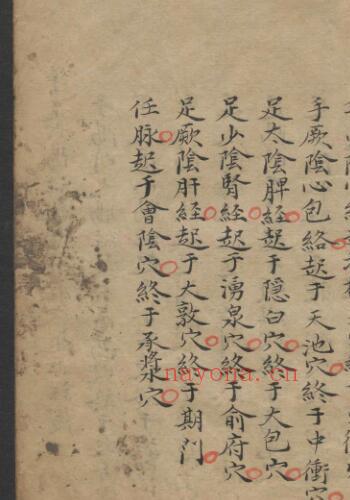 手厥陰心包絡起于天池穴終于中衝穴
足太陰脾經起于隱白穴終于大包穴
足少陰腎經起于湧泉穴終于俞府穴
足厥陰肝經起于大敦穴終于期門
任脉起于會陰穴終于承漿穴
nayona.cn